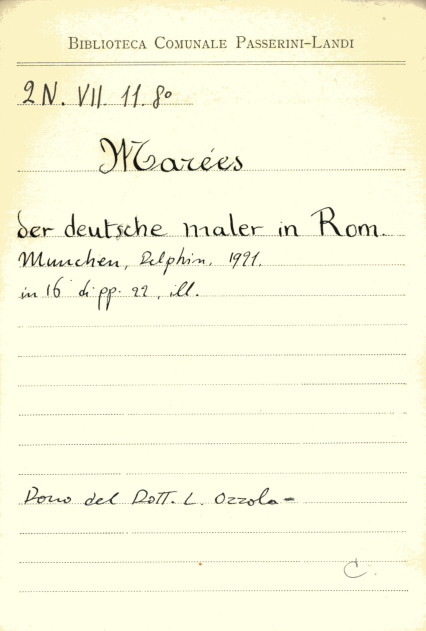 BIBLIOTECA COMUNALE PASSERINI-LANDI
2N. VII. 11. 8º
Marées
der deutsche maler in Rom.
Munchen, Delphin. 1921.
in 16 di pp. 22, ill.
Dono del Dott. L. Ozzola -
C.